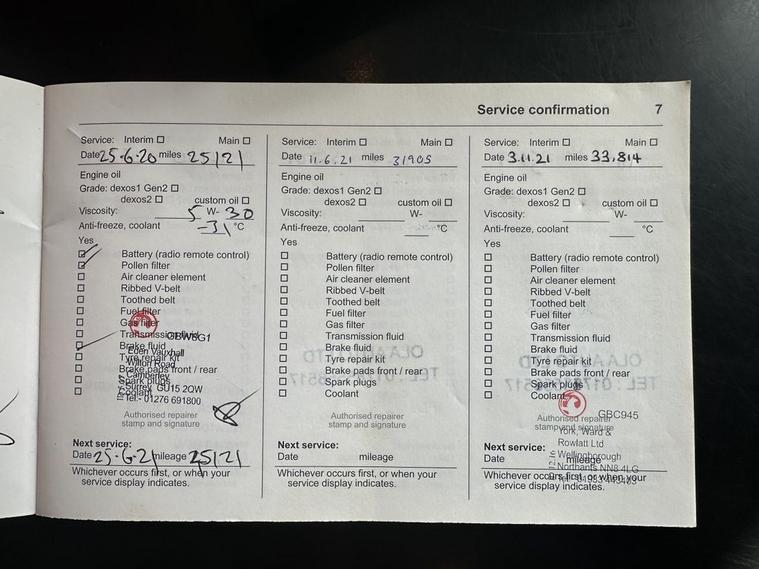 Service confirmation 7
Service: Interim ☐ Main ☐
Date 25·6·20 miles 25121
Engine oil
Grade: dexos1 Gen2 ☐
dexos2 ☐ custom oil ☐
Viscosity: 5 W- 30
Anti-freeze, coolant -31 °C
Yes
Battery (radio remote control)
Pollen filter
Air cleaner element
Ribbed V-belt
Toothed belt
Fuel filter
Gas filter
Transmission fluid
GBW5G1
Brake fluid
Eden Vauxhall
Tyre repair kit
Wilton Road
Brake pads front / rear
Camberley
Spark plugs
Surrey GU15 2QW
Coolant
Tel: 01276 691800
Authorised repairer
stamp and signature
Next service:
Date 25·6·21 mileage 25121
Whichever occurs first, or when your
service display indicates.
Service: Interim ☐ Main ☐
Date 11.6.21 miles 31905
Engine oil
Grade: dexos1 Gen2 ☐
dexos2 ☐ custom oil ☐
Viscosity: W-
Anti-freeze, coolant °C
Yes
☐ Battery (radio remote control)
☐ Pollen filter
☐ Air cleaner element
☐ Ribbed V-belt
☐ Toothed belt
☐ Fuel filter
☐ Gas filter
☐ Transmission fluid
☐ Brake fluid
☐ Tyre repair kit
☐ Brake pads front / rear
☐ Spark plugs
☐ Coolant
Authorised repairer
stamp and signature
Next service:
Date mileage
Whichever occurs first, or when your
service display indicates.
Service: Interim ☐ Main ☐
Date 3.11.21 miles 33,814
Engine oil
Grade: dexos1 Gen2 ☐
dexos2 ☐ custom oil ☐
Viscosity: W-
Anti-freeze, coolant °C
Yes
☐ Battery (radio remote control)
☐ Pollen filter
☐ Air cleaner element
☐ Ribbed V-belt
☐ Toothed belt
☐ Fuel filter
☐ Gas filter
☐ Transmission fluid
☐ Brake fluid
☐ Tyre repair kit
☐ Brake pads front / rear
☐ Spark plugs
☐ Coolant
GBC945
Authorised repairer
stamp and signature
York, Ward &
Rowlatt Ltd
Next service:
Wellingborough
Date mileage
Northants NN8 4LG
Whichever occurs first, or when your
service display indicates.